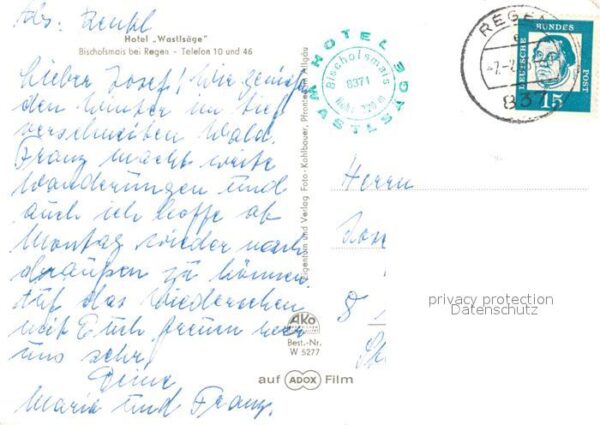 Abs. Zeukl
Hotel „Wastlsäge"
Bischofsmais bei Regen - Telefon 10 und 46
Lieber Josef! Wir genießen
den Winter im tief
verschneiten Wald.
Franz macht weite
Wanderungen und
auch ich hoffe ab
Montag wieder nach
draußen zu können.
Auf das Wiedersehen
mit Euch freuen wir
uns sehr.
Deine
Maria und Franz.
HOTEL WASTLSÄGE
Bischofsmais
8371
Eigentum und Verlag Foto-Kohlbauer, Pfronten/Allgäu
AKO
Best.-Nr.
W 5277
auf ADOX Film
REGEN
83
DEUTSCHE BUNDESPOST
15
Herrn
8
privacy protection
Datenschutz